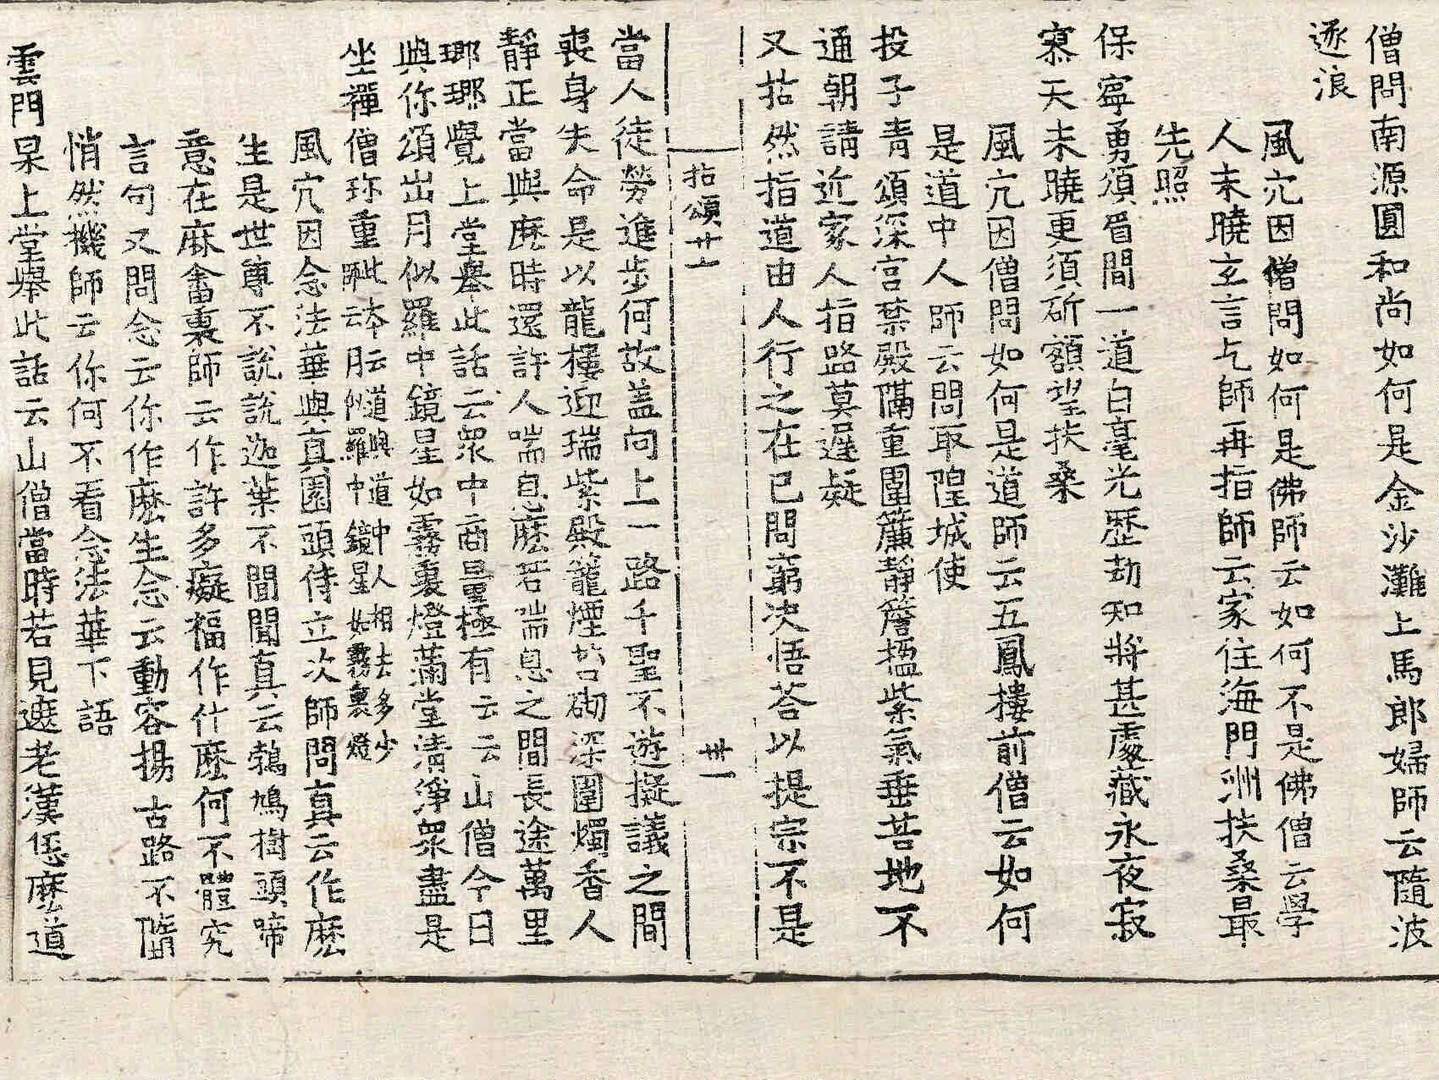 僧問南源圓和尚如何是金沙灘上馬郎婦師云隨波
逐浪
風穴因僧問如何是佛師云如何不是佛僧云學
人未曉玄言乞師再指師云家住海門洲扶桑最
先照
保寧勇頌眉間一道白毫光歷劫知將甚處藏永夜寂
寥天未曉更須斫額望扶桑
風穴因僧問如何是道師云五鳳樓前僧云如何
是道中人師云問取隍城使
投子青頌深宮禁殿隔重圍簾靜簷楹紫氣垂苔地不
通朝請近家人指路莫遲疑
又拈然指道由人行之在已問窮决悟荅以提宗不是
拈頌廿上
卅一
當人徒勞進步何故盖向上一路千聖不遊擬議之間
喪身失命是以龍樓迎瑞紫殿籠煙苔砌深圍燭香人
靜正當與麽時還許人喘息麽若喘息之間長途萬里
瑯瑘覺上堂舉此話云衆中商量極有云云山僧今日
與你頌出月似羅中鏡星如霧裏燈滿堂清淨衆盡是
坐禪僧珎重此本云道與道中人相去多少師云月似羅中鏡星如霧裏燈
風穴因念法華與真園頭侍立次師問真云作麽
生是世尊不說說迦葉不聞聞真云鵓鳩樹頭啼
意在麻畬裏師云作許多癡福作什麽何不體究
言句又問念云你作麽生念云動容揚古路不墮
悄然機師云你何不看念法華下語
雲門杲上堂舉此話云山僧當時若見遮老漢恁麽道